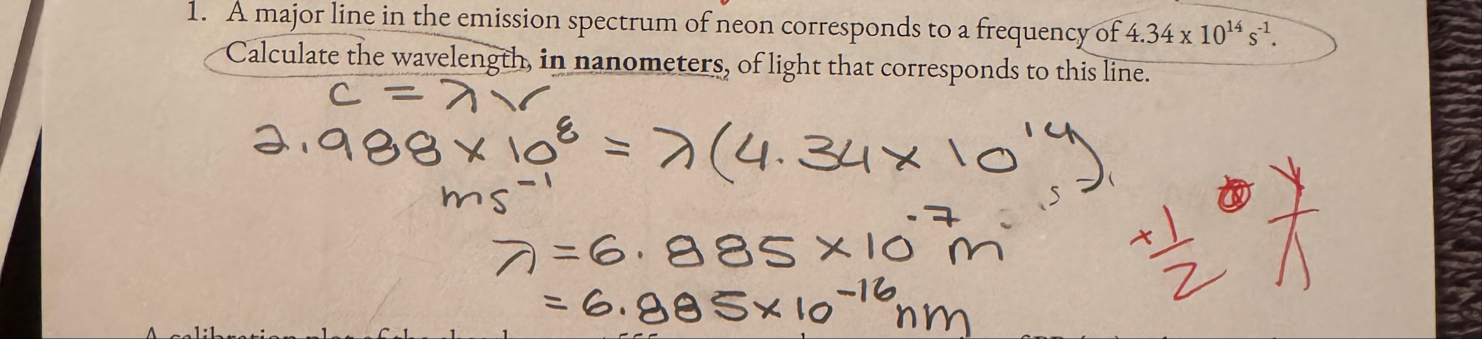 1. A major line in the emission spectrum of neon corresponds to a frequency of 4.34 x 10¹⁴ s⁻¹.
Calculate the wavelength, in nanometers, of light that corresponds to this line.
c = λν
2.988 × 10⁸ = λ(4.34 × 10¹⁴)
ms⁻¹
λ = 6.885 × 10⁻⁷ m
= 6.885 × 10⁻¹⁶ nm
+1/2
A calibration plot of the